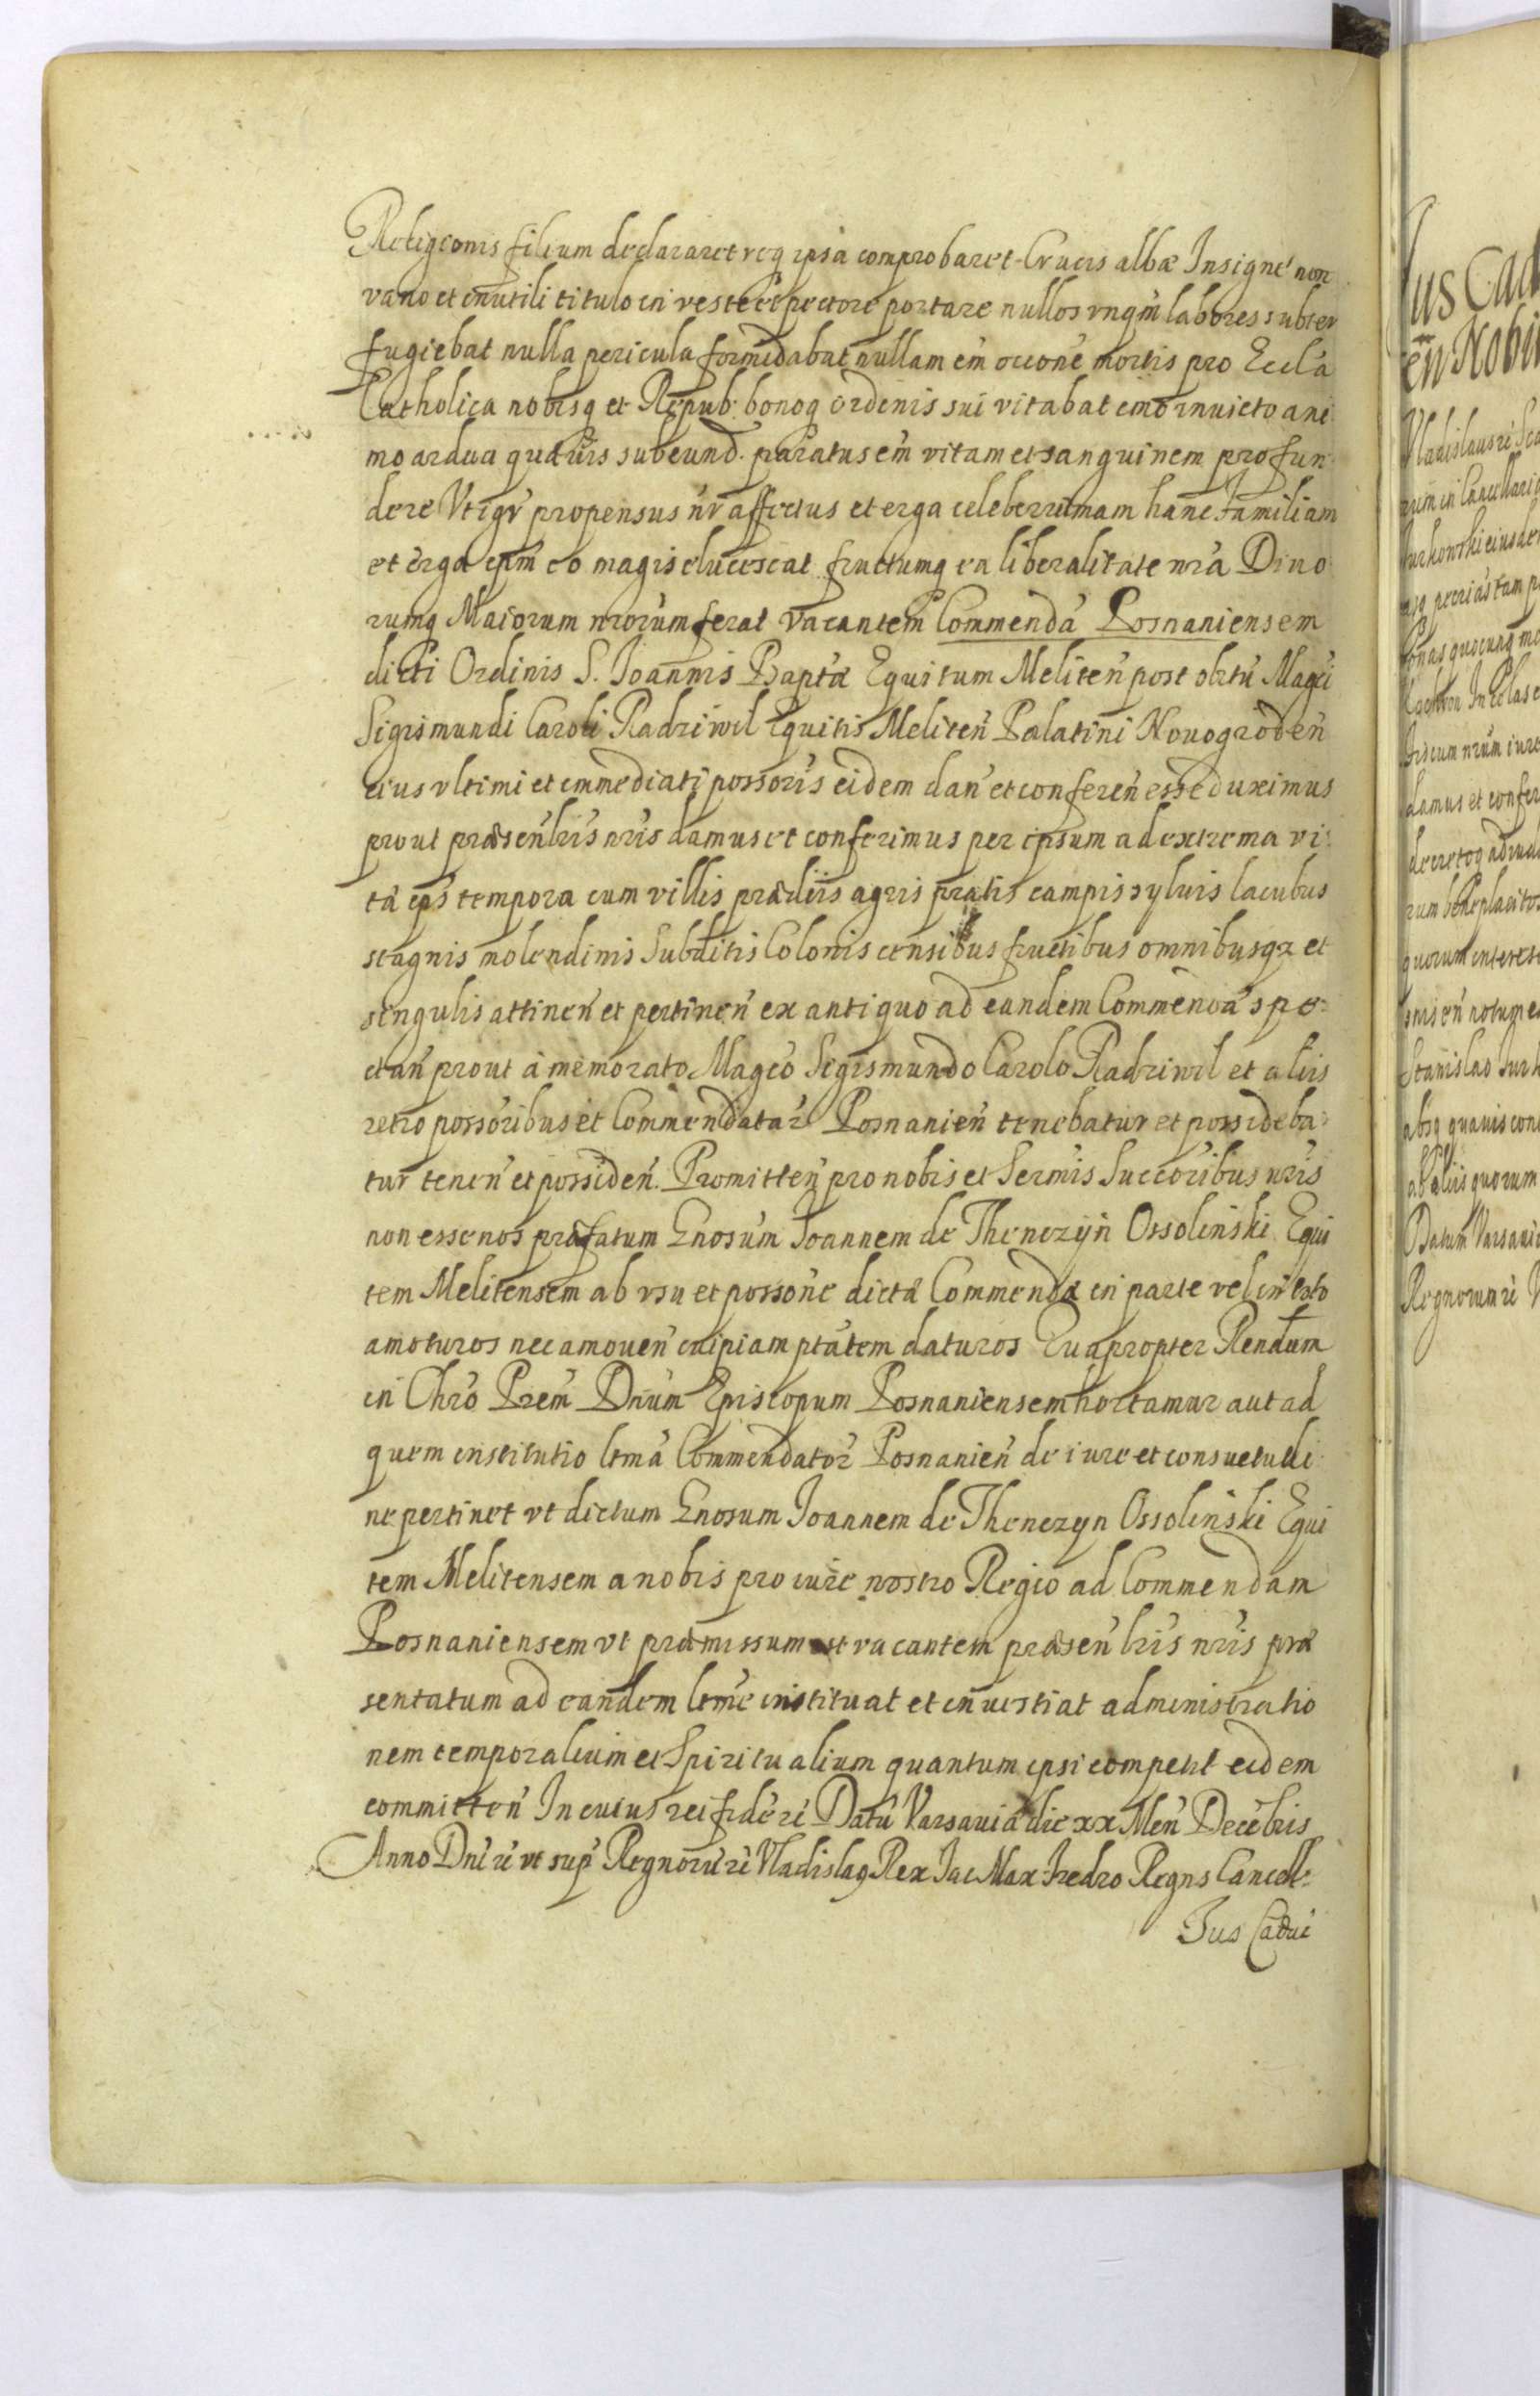 Religionis filium declararet req ipsa comprobaret Crucis albæ Insigne non
vano et inutili titulo in veste et pectore portare nullos vnqm̃ labores subter
fugiebat nulla pericula formidabat nullam em̃ occone mortis pro Eccla
Catholica nobisq et Repub: bonoq ordinis sui vitabat imo inuicto ani
mo ardua quæuis subeund. paratus em̃ vitam et sanguinem profun
dere Vt igr propensus nr̃ affectus et erga celeberrimam hanc Familiam
et erga epm̃ eo magis elucescat fructumq ea liberalitate nrã Diuo
rumq Maiorum nrorum ferat vacantem Commendã Posnaniensem
dicti Ordinis S. Joannis Baptæ Equitum Meliteñ post obitũ Magci
Sigismundi Caroli Radziwil Equitis Meliteñ Palatini Nouogrodeñ
eius vltimi et immediati possoris eidem dañ et confereñ esse duximus
prout præseñ lris nris damus et conferimus per ipsum ad extrema vi
tæ eps tempora cum villis prædiis agris pratis campis syluis lacubus
stagnis molendinis Subditis Colonis censibus fructibus omnibusqz et
singulis attineñ et pertineñ ex antiquo ad eandem Commendã spe-
ctañ prout à memorato Magco Sigismundo Carolo Radziwil et aliis
retro possoribus et Commendatar Posnanieñ tenebatur et possideba
tur teneñ et possideñ. Promitteñ pro nobis et Sermis Succoribus nris
non esse nos præfatum Gnosum Joannem de Thenczyn Ossolinski Equi
tem Melitensem ab vsu et possone dictæ Commendæ in parte vel in toto
amoturos nec amoueñ cuipiam ptatem daturos Quapropter Rendum
in Chro Prem Dnum Episcopum Posnaniensem hortamur aut ad
quem institutio ltmã Commendator Posnanieñ de iure et consuetudi
ne pertinet vt dictum Gnosum Joannem de Thenczyn Ossolinski Equi
tem Melitensem a nobis pro iure nostro Regio ad Commendam
Posnaniensem vt præmissum est vacantem præseñ lris nris præ
sentatum ad eandem ltme instituat et inuestiat administratio
nem temporalium et Spiritualium quantum ipsi competit eidem
committeñ In cuius rei fidẽ rĩ Datũ Varsauiæ die xx Meñ Decẽbris
Anno Dni rĩ vt sup̃ Regnorũ rĩ Vladislaq Rex Jac Max Fredro Regns Cancell:
Jus Caduc